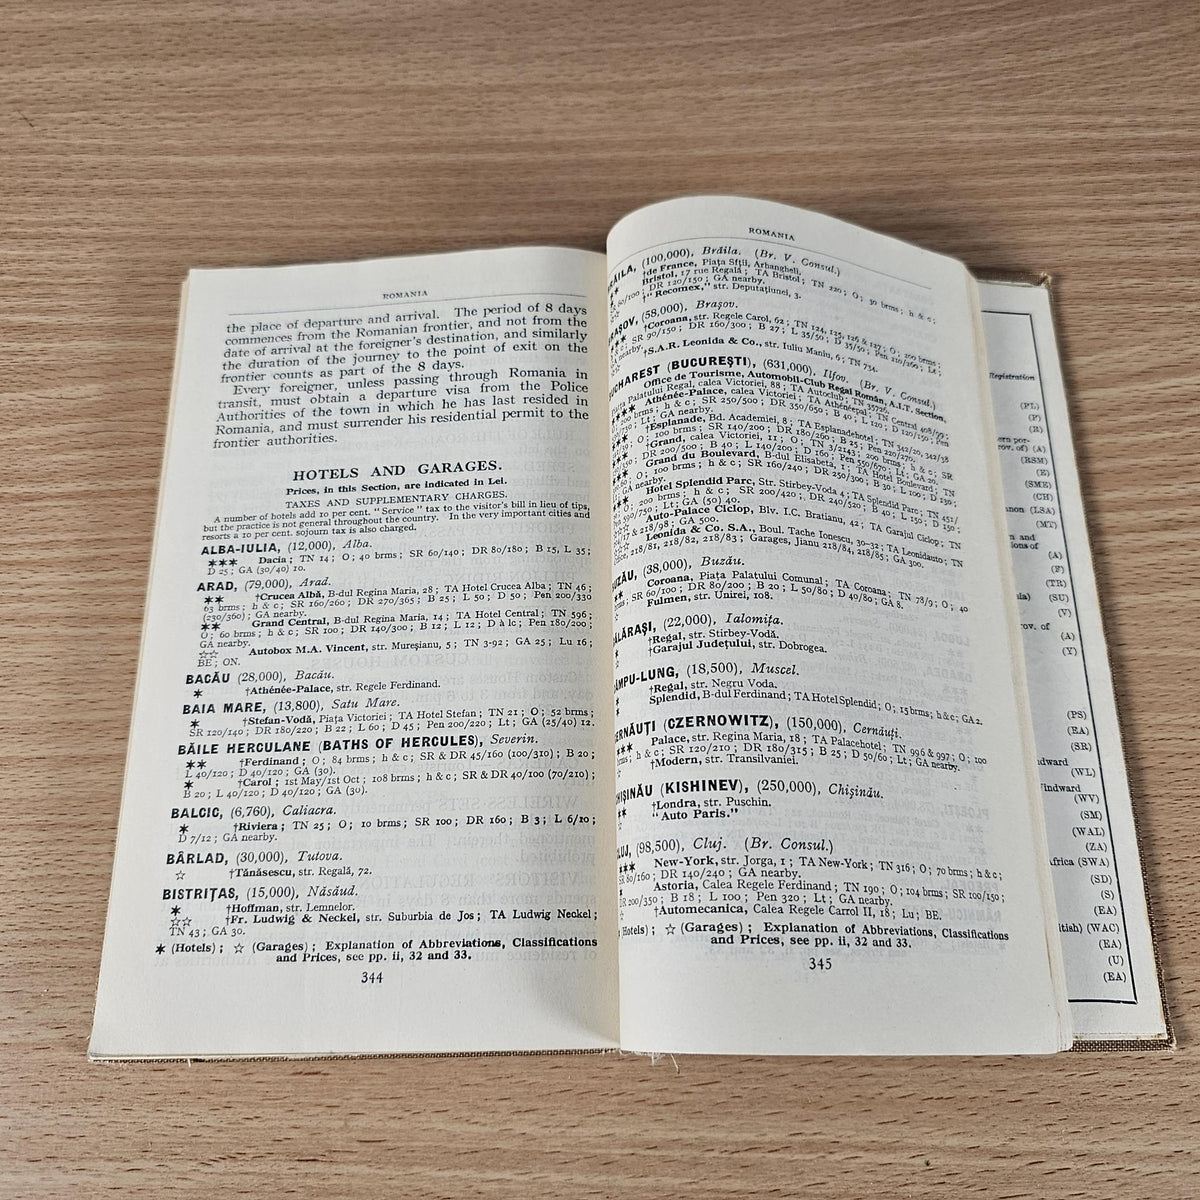 ROMANIA
the place of departure and arrival. The period of 8 days
commences from the Romanian frontier, and not from the
date of arrival at the foreigner's destination, and similarly
the duration of the journey to the point of exit on the
frontier counts as part of the 8 days.
Every foreigner, unless passing through Romania in
transit, must obtain a departure visa from the Police
Authorities of the town in which he has last resided in
Romania, and must surrender his residential permit to the
frontier authorities.
HOTELS AND GARAGES.
Prices, in this Section, are indicated in Lei.
TAXES AND SUPPLEMENTARY CHARGES.
A number of hotels add 10 per cent. "Service" tax to the visitor's bill in lieu of tips,
but the practice is not general throughout the country. In the very important cities and
resorts a 10 per cent. sojourn tax is also charged.
ALBA-IULIA, (12,000), Alba.
★★★ Dacia; TN 14; O; 40 brms; SR 60/140; DR 80/180; B 15, L 35;
D 25; GA (30/40) 10.
ARAD, (79,000), Arad.
★★ †Crucea Albă, B-dul Regina Maria, 28; TA Hotel Crucea Alba; TN 46;
63 brms; h & c; SR 160/260; DR 270/365; B 25; L 50; D 50; Pen 200/330
(230/360); GA nearby.
★★ Grand Central, B-dul Regina Maria, 14; TA Hotel Central; TN 596;
O; 60 brms; h & c; SR 100; DR 140/300; B 12; L 12; D à lc; Pen 180/200;
GA nearby.
☆☆ Autobox M.A. Vincent, str. Mureşianu, 5; TN 3-92; GA 25; Lu 16;
BE; ON.
BACĂU (28,000), Bacău.
★ †Athénée-Palace, str. Regele Ferdinand.
BAIA MARE, (13,800), Satu Mare.
★ †Stefan-Vodă, Piaţa Victoriei; TA Hotel Stefan; TN 21; O; 52 brms;
SR 120/140; DR 180/220; B 22; L 60; D 45; Pen 200/220; Lt; GA (25/40) 12.
BĂILE HERCULANE (BATHS OF HERCULES), Severin.
★★ †Ferdinand; O; 84 brms; h & c; SR & DR 45/160 (100/310); B 20;
L 40/120; D 40/120; GA (30).
★ †Carol; 1st May/1st Oct; 108 brms; h & c; SR & DR 40/100 (70/210);
B 20; L 40/120; D 40/120; GA (30).
BALCIC, (6,760), Caliacra.
★ †Riviera; TN 25; O; 10 brms; SR 100; DR 160; B 3; L 6/10;
D 7/12; GA nearby.
BÂRLAD, (30,000), Tutova.
☆ †Tănăsescu, str. Regală, 72.
BISTRIŢAS, (15,000), Năsăud.
★ †Hoffman, str. Lemnelor.
☆☆ †Fr. Ludwig & Neckel, str. Suburbia de Jos; TA Ludwig Neckel;
TN 43; GA 30.
★ (Hotels); ☆ (Garages); Explanation of Abbreviations, Classifications
and Prices, see pp. ii, 32 and 33.
344
ROMANIA
(100,000), Brăila. (Br. V. Consul.)
†de France, Piaţa Sftii, Arhangheli.
Bristol, 17 rue Regală; TA Bristol; TN 220; O; 30 brms; h & c;
DR 120/150; GA nearby.
†"Recomex," str. Deputaţiunei, 3.
(58,000), Braşov.
†Coroana, str. Regele Carol, 62; TN 124, 125, 126 & 127; O; 200 brms;
SR 90/150; DR 160/300; B 27; L 35/50; D 35/50; Pen 210/260; Lt;
nearby.
†S.A.R. Leonida & Co., str. Iuliu Maniu, 6; TN 734.
BUCHAREST (BUCUREŞTI), (631,000), Ilfov. (Br. V. Consul.)
Office de Tourisme, Automobil-Club Regal Român, A.I.T. Section,
Palatului Regal, calea Victoriei, 88; TA Autoclub; TN 35786.
Athénée-Palace, calea Victoriei; TA Athéneepal; TN Central 408/99;
brms; h & c; SR 250/500; DR 350/650; B 40; L 120; D 120/150; Pen
Lt; GA nearby.
†Esplanade, Bd. Academiei, 8; TA Esplanadehotel; TN 342/20, 342/38
O; 100 brms; SR 140/200; DR 180/260; B 25; Pen 220/270.
†Grand, calea Victoriei, 11; O; TN 3/2143; 200 brms; h & c; SR
DR 200/500; B 40; L 140/200; D 160; Pen 550/670; Lt; GA 20.
Grand du Boulevard, B-dul Elisabeta, 1; TA Hotel Boulevard; TN
O; 100 brms; h & c; SR 160/240; DR 250/300; B 30; L 100; D 130;
GA nearby.
Hotel Splendid Parc, Str. Stirbey-Voda 4; TA Splendid Parc; TN 451/
O; 200 brms; h & c; SR 200/420; DR 240/520; B 40; L 150; D 150;
590/750; Lt; GA (50) 40.
Auto-Palace Ciclop, Blv. I.C. Bratianu, 42; TA Garajul Ciclop; TN
& 218/98; GA 500.
Leonida & Co. S.A., Boul. Tache Ionescu, 30-32; TA Leonidauto; TN
218/81, 218/82, 218/83; Garages, Jianu 218/84, 218/85; GA 300.
BUZĂU, (38,000), Buzău.
Coroana, Piaţa Palatului Comunal; TA Coroana; TN 78/9; O; 40
brms; SR 60/100; DR 80/200; B 20; L 50/80; D 40/80; GA 8.
Fulmen, str. Unirei, 108.
(22,000), Ialomiţa.
†Regal, str. Stirbey-Vodă.
†Garajul Judeţului, str. Dobrogea.
(18,500), Muscel.
†Regal, str. Negru Voda.
Splendid, B-dul Ferdinand; TA Hotel Splendid; O; 15 brms; h & c; GA 2.
CERNĂUŢI (CZERNOWITZ), (150,000), Cernăuţi.
Palace, str. Regina Maria, 18; TA Palacehotel; TN 996 & 997; O; 100
brms; h & c; SR 120/210; DR 180/315; B 25; D 50/60; Lt; GA nearby.
†Modern, str. Transilvaniei.
CHIŞINĂU (KISHINEV), (250,000), Chişinău.
†Londra, str. Puschin.
"Auto Paris."
CLUJ, (98,500), Cluj. (Br. Consul.)
New-York, str. Jorga, 1; TA New-York; TN 316; O; 70 brms; h & c;
SR 80/160; DR 140/240; GA nearby.
Astoria, Calea Regele Ferdinand; TN 190; O; 104 brms; SR 100/150;
DR 200/350; B 18; L 100; Pen 320; Lt; GA nearby.
†Automecanica, Calea Regele Carrol II, 18; Lu; BE.
(Hotels); ☆ (Garages); Explanation of Abbreviations, Classifications
and Prices, see pp. ii, 32 and 33.
345
Registration
(PL)
(P)
(R)
(A)
(RSM)
(E)
(SME)
(CH)
(LSA)
(MT)
(A)
(F)
(TR)
(SU)
(V)
(A)
(Y)
(PS)
(EA)
(SR)
(WL)
(WV)
(SM)
(WAL)
(ZA)
(SWA)
(SD)
(S)
(EA)
(WAC)
(EA)
(U)
(EA)